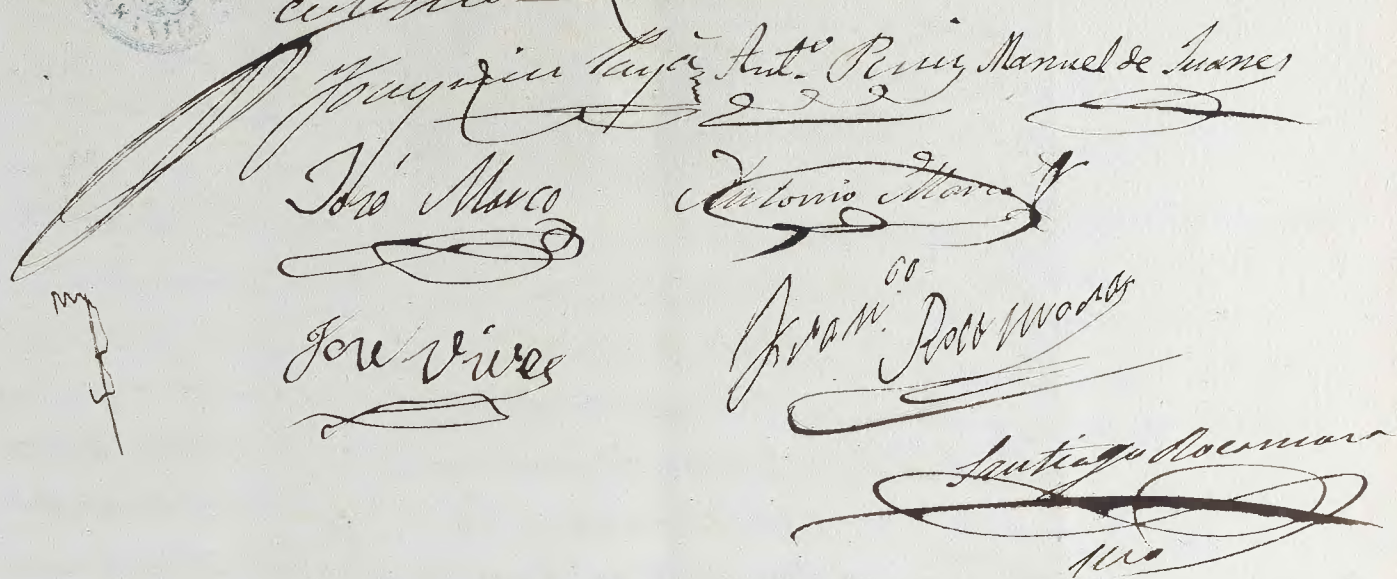 Joaquin Payá Ant.º Ruiz Manuel de Juanes
José Marco Antonio Marco
José Vives Fran.co Rocamora
Santiago Rocamora